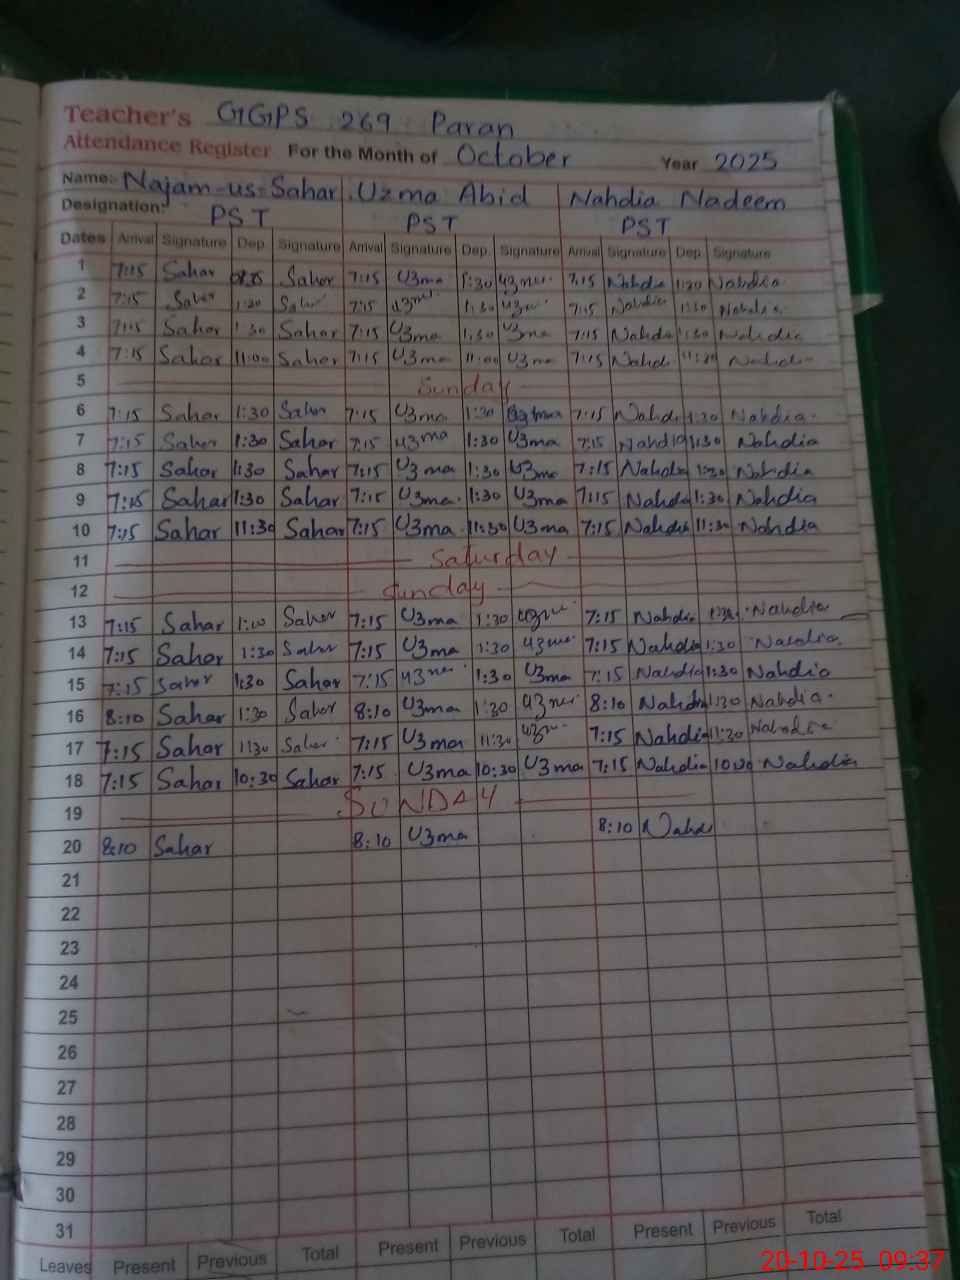 Teacher's GGPS 269 Paran
Attendance Register For the Month of October Year 2025
Name:- Najam-us-Sahar Uzma Abid Nahdia Nadeem
Designation: PST PST PST
Dates Arrival Signature Dep. Signature Arrival Signature Dep. Signature Arrival Signature Dep. Signature
1 7:15 Sahar Sahar 7:15 U3ma 1:30 7:15 Nahdia 1:30 Nahdia
2 7:15 Sahar 1:30 Sahar 7:15 1:30 7:15 Nahdia 1:30 Nahdia
3 7:15 Sahar 1:30 Sahar 7:15 U3ma 1:30 U3ma 7:15 Nahdia 1:30 Nahdia
4 7:15 Sahar 11:00 Sahar 7:15 U3ma 11:00 U3ma 7:15 Nahdi Nahdi
5 Sunday
6 7:15 Sahar 1:30 Sahar 7:15 U3ma 1:30 7:15 Nahdi 1:30 Nahdia
7 7:15 Sahar 1:30 Sahar 7:15 U3ma 1:30 U3ma 7:15 Nahdia 1:30 Nahdia
8 7:15 Sahar 1:30 Sahar 7:15 U3ma 1:30 U3ma 7:15 Nahdia 1:30 Nahdia
9 7:15 Sahar 1:30 Sahar 7:15 U3ma 1:30 U3ma 7:15 Nahdia 1:30 Nahdia
10 7:15 Sahar 11:30 Sahar 7:15 U3ma 11:30 U3ma 7:15 Nahdia 11:30 Nahdia
11 Saturday
12 Sunday
13 7:15 Sahar Sahar 7:15 U3ma 1:30 7:15 Nahdia Nahdia
14 7:15 Sahar 1:30 Sahar 7:15 U3ma 1:30 U3ma 7:15 Nahdia 1:30 Nahdia
15 7:15 Sahar 1:30 Sahar 7:15 U3ma 1:30 U3ma 7:15 Nahdia 1:30 Nahdia
16 8:10 Sahar 1:30 Sahar 8:10 U3ma 1:30 U3ma 8:10 Nahdia 1:30 Nahdia
17 7:15 Sahar 1130 Sahar 7:15 U3ma 11:30 7:15 Nahdia 11:30 Nahdia
18 7:15 Sahar 10:30 Sahar 7:15 U3ma 10:30 U3ma 7:15 Nahdia Nahdia
19 SUNDAY
20 8:10 Sahar 8:10 U3ma 8:10 Nahdi
21
22
23
24
25
26
27
28
29
30
31
Leaves Present Previous Total Present Previous Total Present Previous Total
20-10-25 09:37